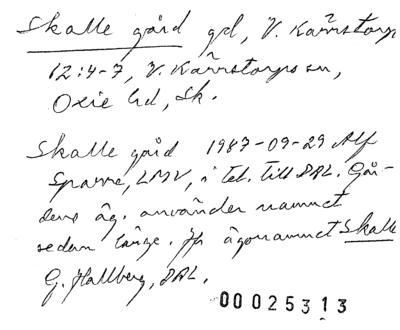 Skalle gård gd, V. Kärrstorp
12:4-7, V. Kärrstorps sn,
Oxie hd, Sk.
Skalle gård 1987-09-29 Alf
Sparre, LMV, i tel. till DAL. Går-
dens äg. använder namnet
sedan länge. Jfr ägonamnet Skalle
G. Hallberg, DAL.
00025313